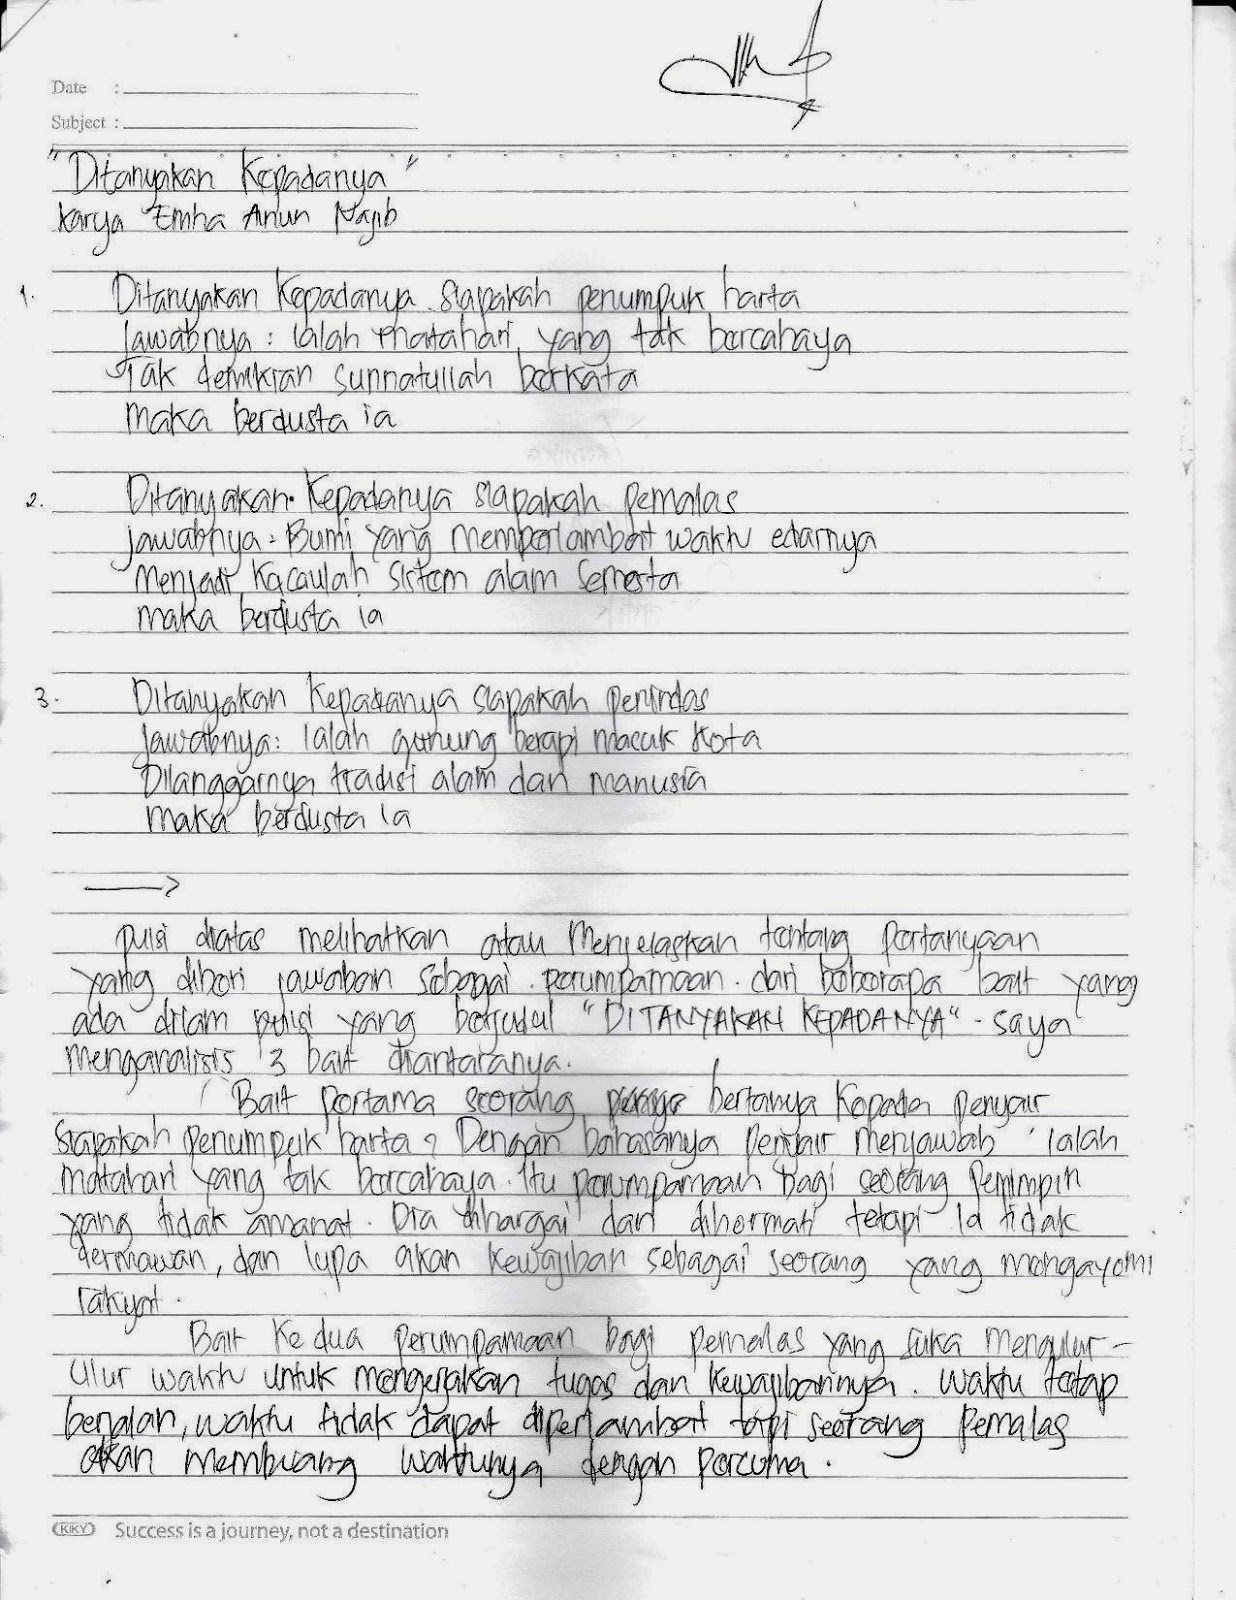 Date :
Subject :
"Ditanyakan Kepadanya"
Karya Emha Ainun Najib
1. Ditanyakan Kepadanya siapakah penumpuk harta
Jawabnya : Ialah Matahari, yang tak bercahaya
Tak demikian sunnatullah berkata
Maka berdusta ia
2. Ditanyakan Kepadanya siapakah pemalas
Jawabnya : Bumi yang memperlambat waktu edarnya
Menjadi Kacaulah sistem alam semesta
Maka berdusta ia
3. Ditanyakan Kepadanya siapakah penindas
Jawabnya : Ialah gunung berapi masuk kota
Dilanggarnya tradisi alam dan manusia
Maka berdusta ia
puisi diatas melihatkan atau Menjelaskan tentang pertanyaan
yang diberi jawaban sebagai perumpamaan. dari beberapa bait yang
ada dilam puisi yang berjudul "DITANYAKAN KEPADANYA" - saya
menganalisis 3 bait diantaranya.
Bait pertama seorang bertanya Kepada Penyair
siapakah penumpuk harta? Dengan bahasanya penyair menjawab Ialah
matahari yang tak bercahaya. Itu perumpamaan bagi seorang Pemimpin
yang tidak amanat. Dia dihargai dan dihormati tetapi Ia tidak
dermawan, dan lupa akan kewajiban sebagai seorang yang mengayomi
rakyat.
Bait Kedua perumpamaan bagi pemalas yang suka mengulur-
ulur waktu untuk mengerjakan tugas dan Kewajibannya. waktu tetap
berjalan, waktu tidak dapat diperlambat tapi seorang pemalas
akan membuang waktunya dengan percuma.
KIKY Success is a journey, not a destination